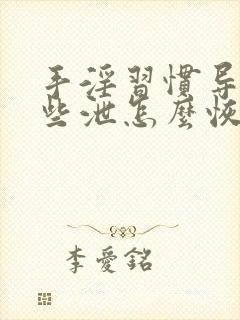 手淫習慣导
些泄怎麼恢
李愛銘